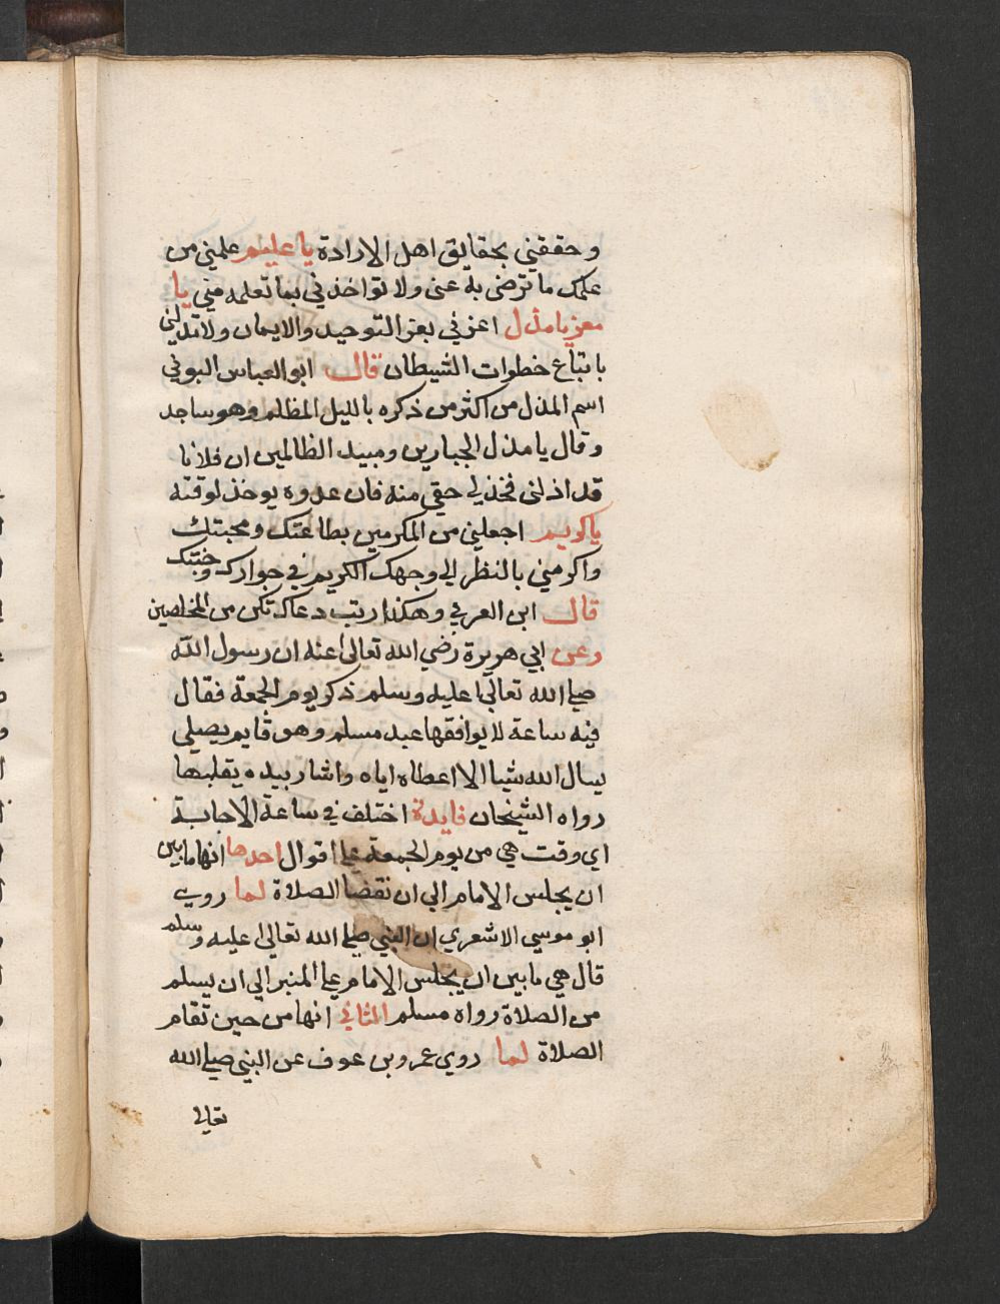 وحققني بحقايق اهل الارادة يا عليم علمني من
علمك ما ترضى به عني ولا تواخذني بما تعلمه مني يا
معز يا مذل اعزني بعز التوحيد والايمان ولا تذلني
باتباع خطوات الشيطان قال ابو العباس البوني
اسم المذل من اكثر من ذكره بالليل المظلم وهو ساجد
وقال يا مذل الجبارين ومبيد الظالمين ان فلانا
قد اذلني فخذ لي حقي منه فان عدوه يوخذ لوقته
يا كريم اجعلني من المكرمين بطاعتك ومحبتك
واكرمني بالنظر الي وجهك الكريم في جوارك وجنتك
قال ابن العربي وهكذا رتب دعاك تكن من المخلصين
وعن ابي هريرة رضي الله تعالى عنه ان رسول الله
صلي الله تعالي عليه وسلم ذكر يوم الجمعة فقال
فيه ساعة لا يوافقها عبد مسلم وهو قايم يصلي
يسال الله شيا الا اعطاه اياه واشار بيده يقلبها
رواه الشيخان فايدة اختلف في ساعة الاجابة
اي وقت هي من يوم الجمعة علي اقوال احدها انها مابين
ان يجلس الامام الي ان تقضا الصلاة لما روي
ابو موسي الاشعري ان النبي صلي الله تعالي عليه وسلم
قال هي مابين ان يجلس الامام علي المنبر الي ان يسلم
من الصلاة رواه مسلم الثاني انها من حين تقام
الصلاة لما روي عمرو بن عوف عن النبي صلي الله
تعالي